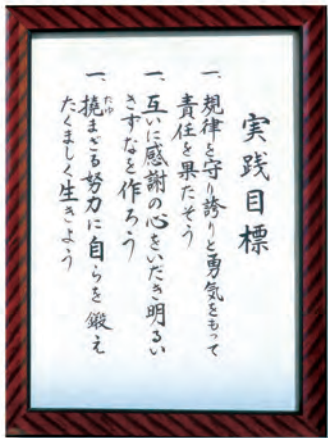 実践目標
一、規律を守り誇りと勇気をもって
責任を果たそう
一、互いに感謝の心をいだき明るい
きずなを作ろう
一、撓まざる努力に自らを鍛え
たくましく生きよう